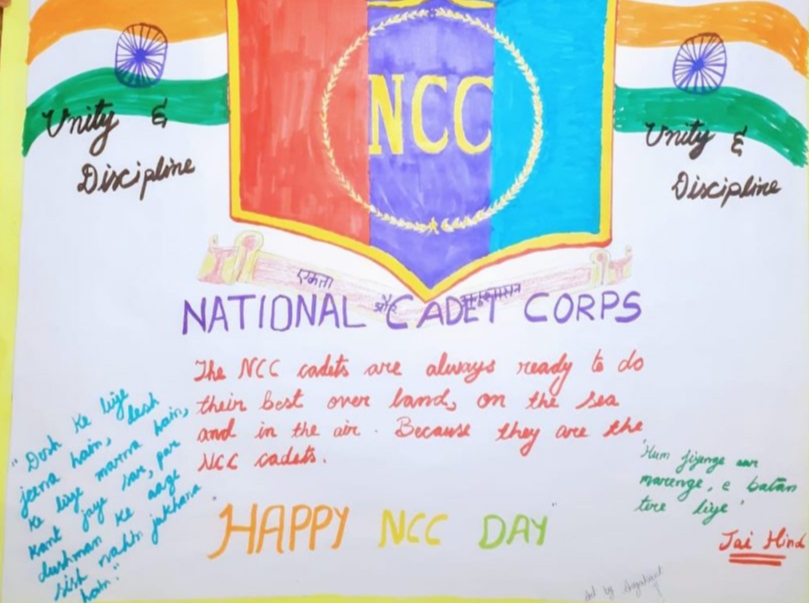 NCC
Unity &
Discipline
Unity &
Discipline
एकता और अनुशासन
NATIONAL CADET CORPS
The NCC cadets are always ready to do
their best over land, on the sea
and in the air. Because they are the
NCC cadets.
"Desh ke liye
jeena hain, desh
ke liye marna hain,
kant jaye sar, par
dushman ke aage
sish nahi jukhana
hain."
'Hum jiyenge aur
marenge, e batan
tere liye'
Jai Hind
"HAPPY NCC DAY"